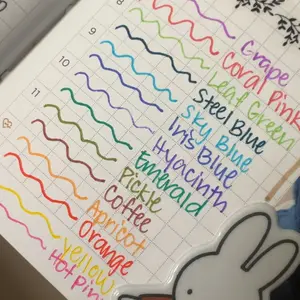 8
Grape
Coral Pink
9
Leaf Green
Steel Blue
10
Sky Blue
Iris Blue
11
Hyacinth
Emerald
Pickle
Coffee
Apricot
Orange
Yellow
Hot Pink